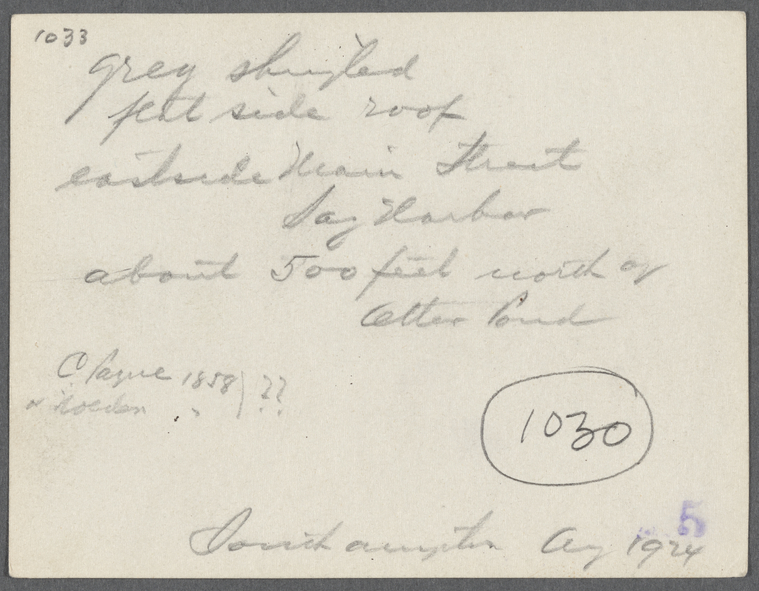 1033
grey shingled
flat side roof
eastside Main Street
Sag Harbor
about 500 feet north of
Otter Pond
C Payne 1858 ) ??
or Holden "
1030
5
Southampton Aug 1924